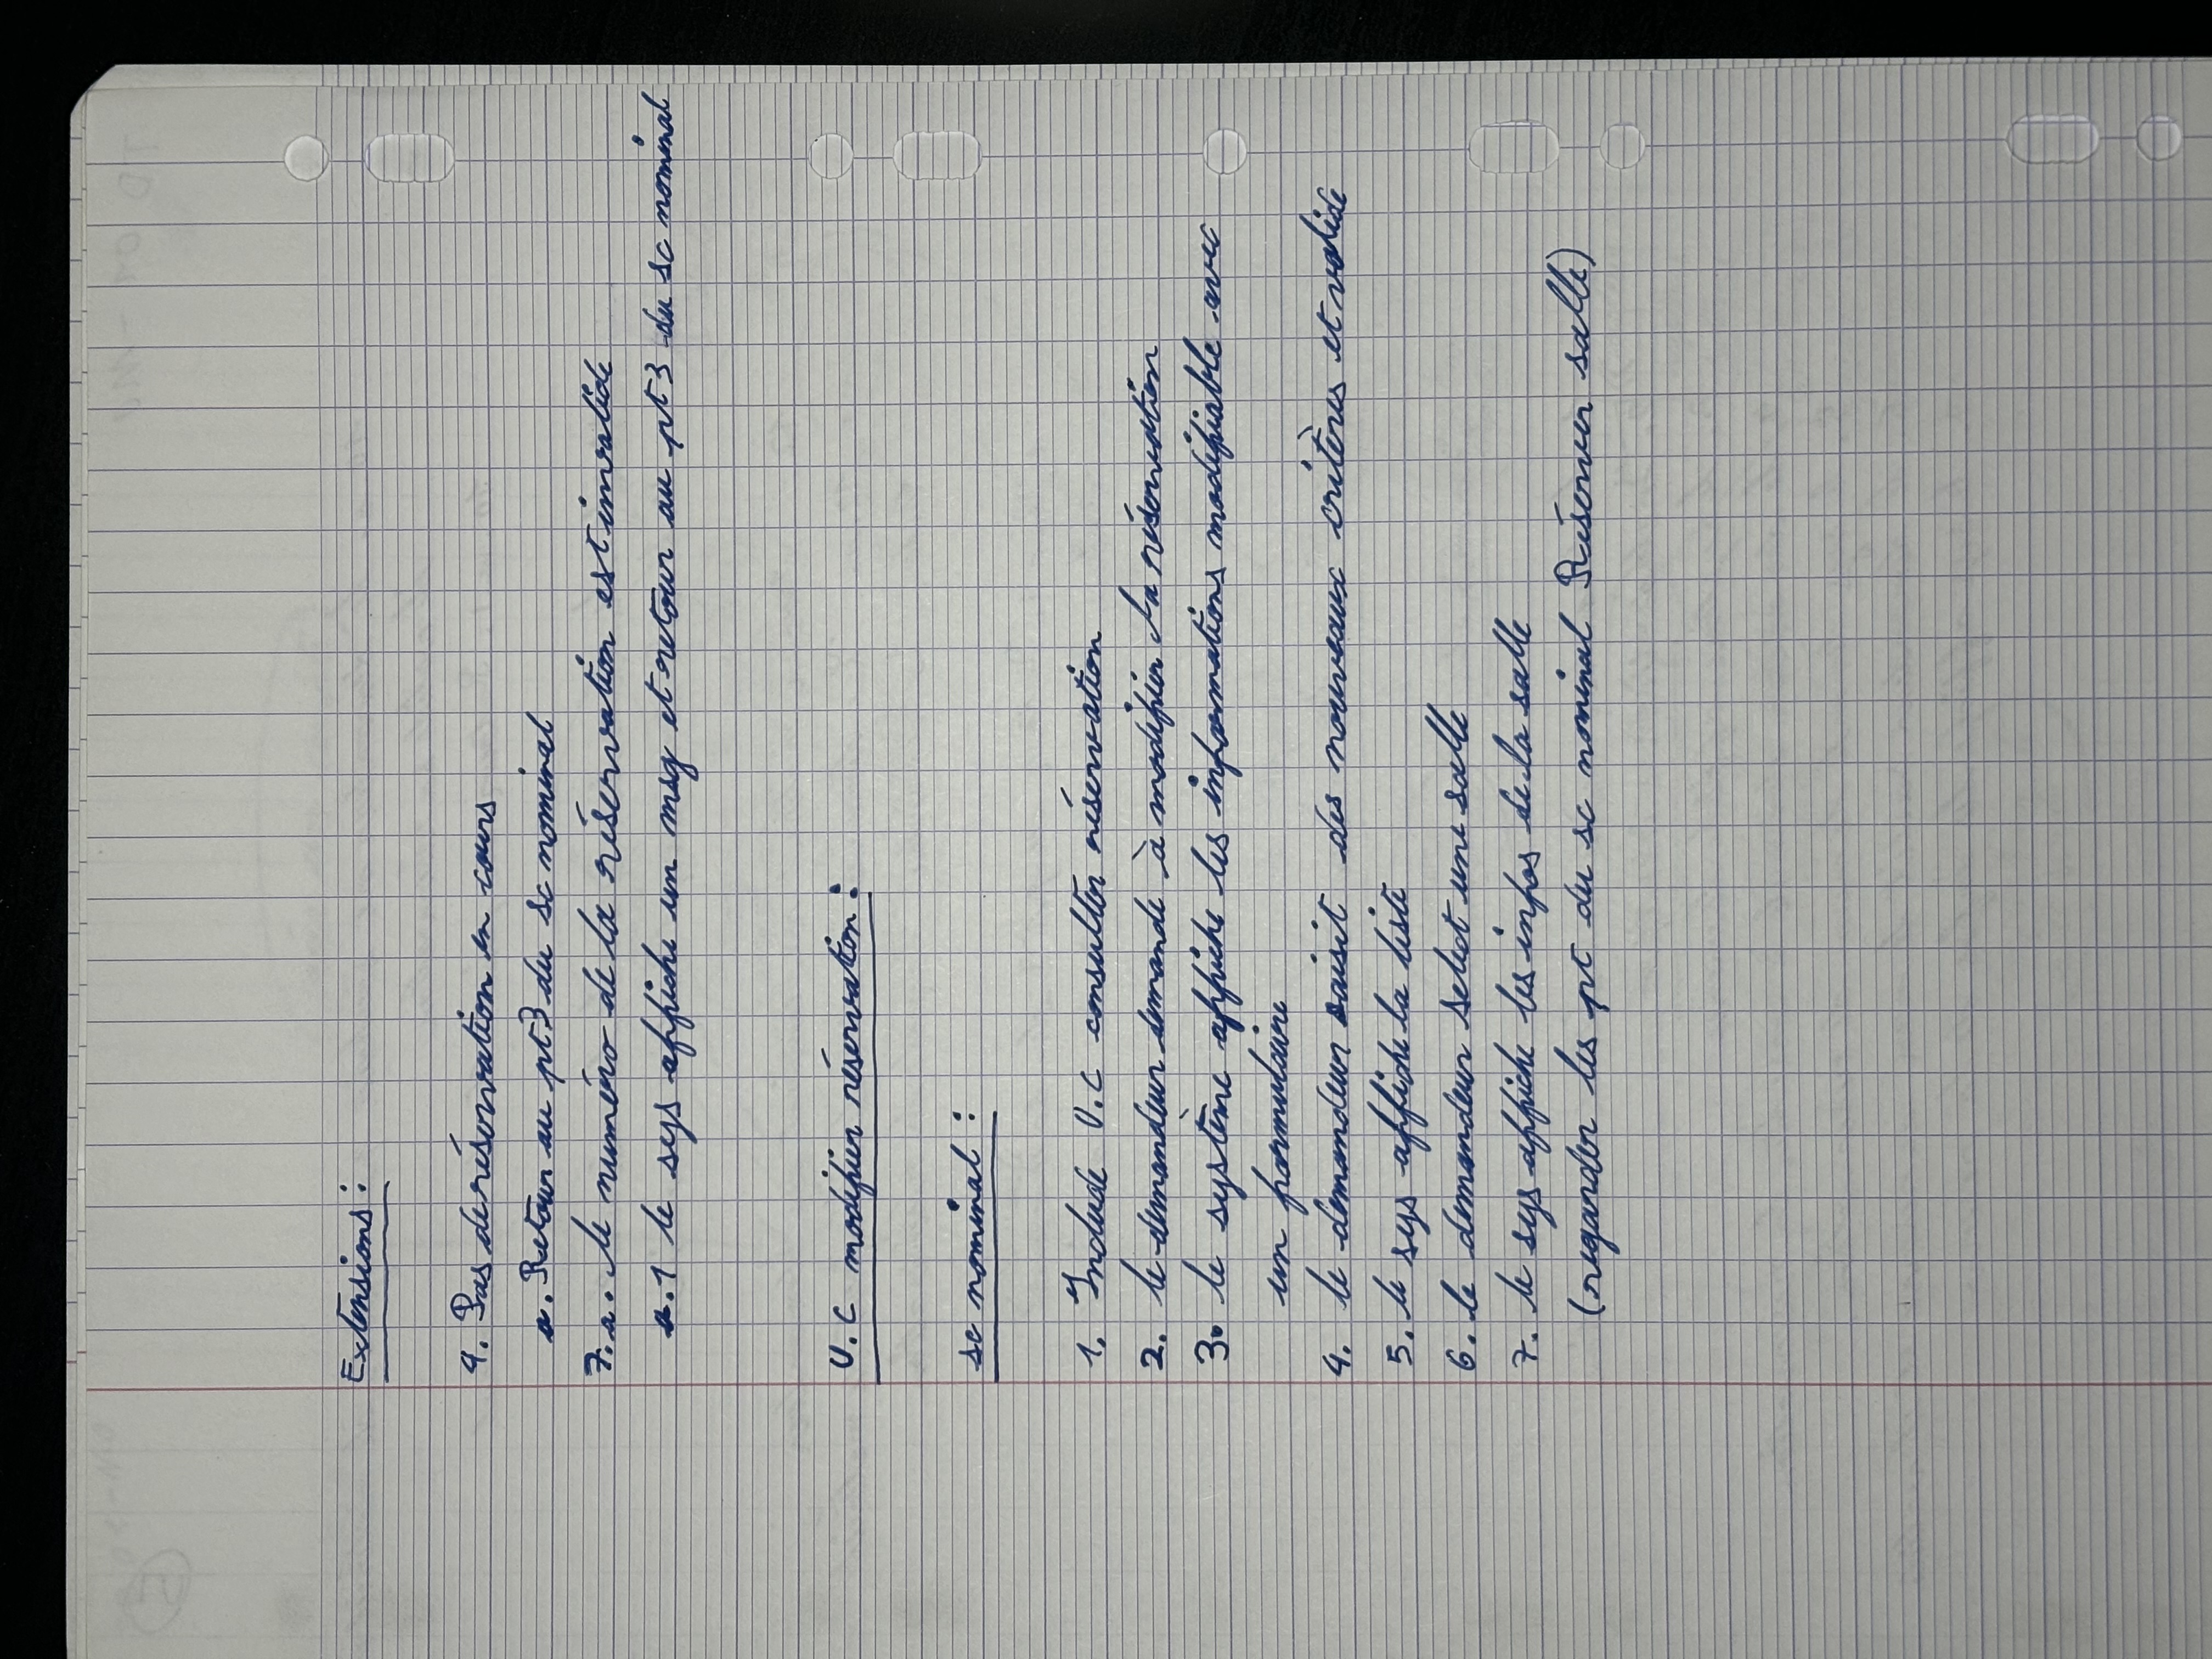 Extensions :
4. Pas de réservation en cours
a. Retour au pt3 du sc nominal
7.a. le numéro de la réservation est invalide
a.1 le sys affiche un msg et retour au pt3 du sc nominal
U.C modifier réservation :
sc nominal :
1. Include U.C consulter réservation
2. le demandeur demande à modifier la réservation
3. le système affiche les informations modifiable avec
un formulaire
4. le demandeur saisit des nouveaux critères et valide
5. le sys affiche la liste
6. le demandeur select une salle
7. le sys affiche les infos de la salle
(regarder les pt du sc nominal Réserver salle)